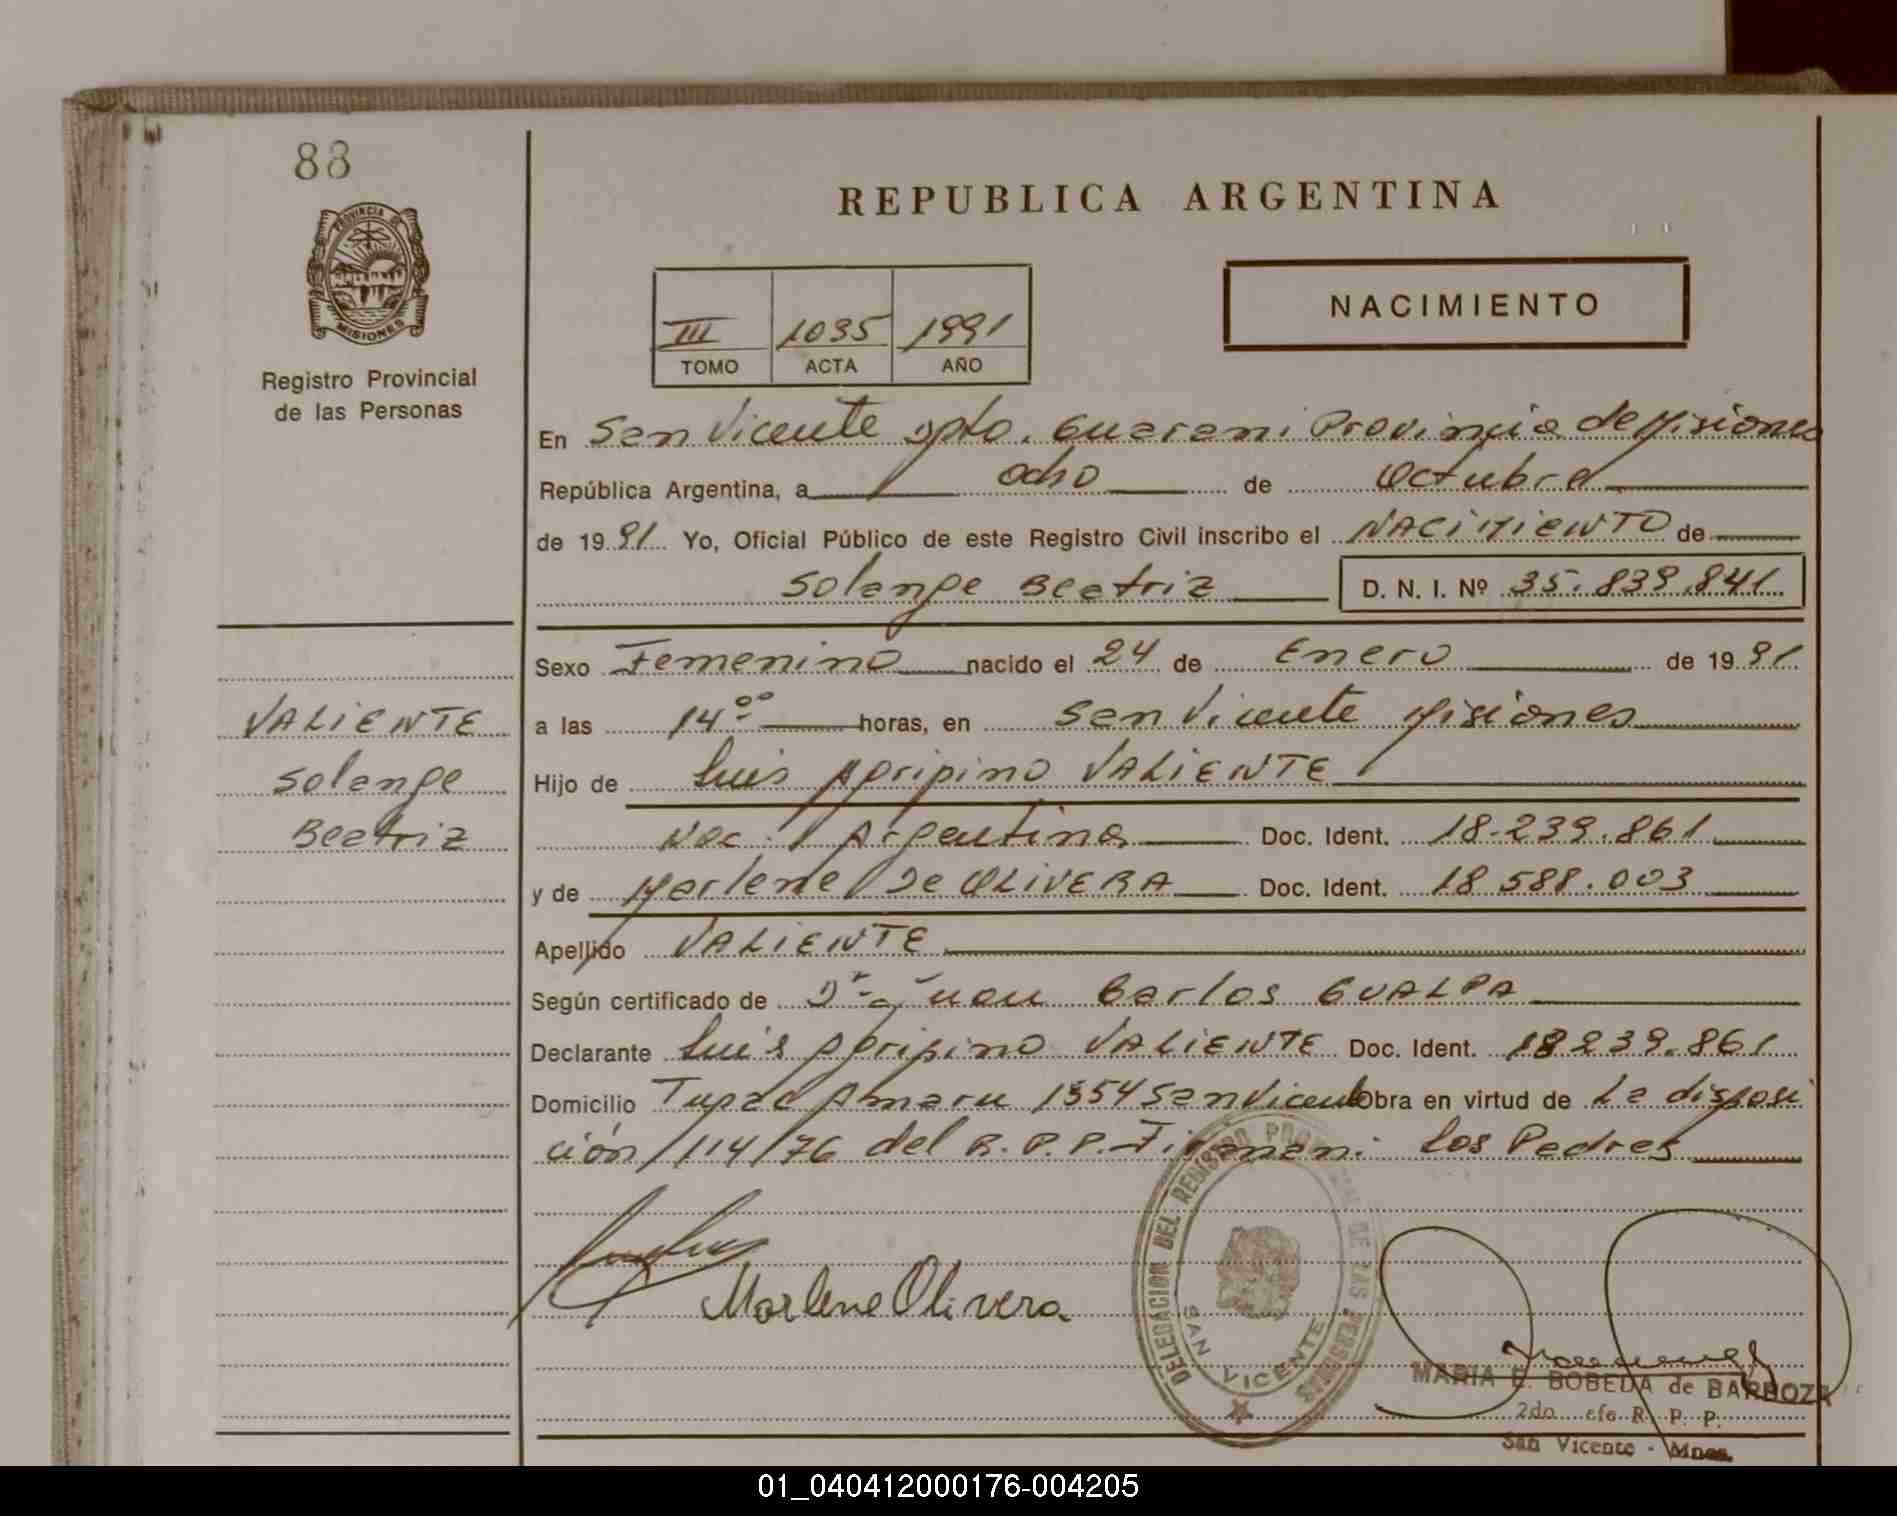 88
PROVINCIA DE
MISIONES
Registro Provincial
de las Personas
VALIENTE
Solange
Beatriz
REPUBLICA ARGENTINA
NACIMIENTO
III 1035 1991
TOMO ACTA AÑO
En San Vicente Dpto. Guarani Provincia de Misiones
República Argentina, a ocho de Octubre
de 1991 Yo, Oficial Público de este Registro Civil inscribo el NACIMIENTO de
Solange Beatriz D. N. I. Nº 35.839.841
Sexo Femenino nacido el 24 de Enero de 1991
a las 14 ºº horas, en San Vicente Misiones
Hijo de Luis Agripino VALIENTE
Nac. Argentina Doc. Ident. 18.239.861
y de Marlene De OLIVERA Doc. Ident. 18 588.003
Apellido VALIENTE
Según certificado de Dr. Juan Carlos GUALPA
Declarante Luis Agripino VALIENTE Doc. Ident. 18239.861
Domicilio Tupac Amaru 1354 San Vicente Obra en virtud de La disposi
ción 114/76 del R.P.P. Firman: Los Padres
Marlene Olivera
DELEGACION DEL REGISTRO PROVINCIAL DE LAS PERSONAS
SAN VICENTE
MARIA E. BOBEDA de BARBOZA
2do. Jefe R. P. P.
San Vicente - Mnes.
01_040412000176-004205